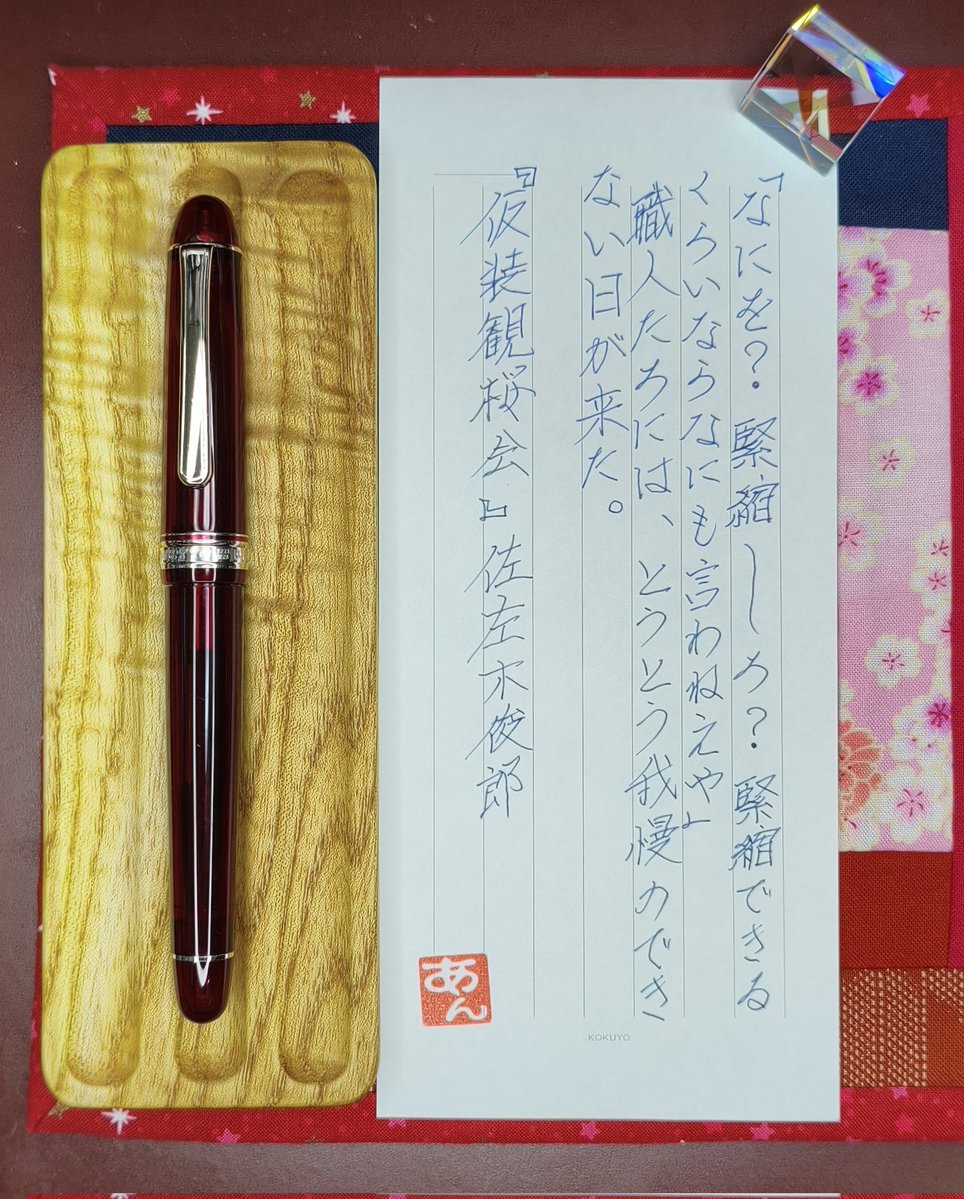 「なにを？ 緊縮しろ？ 緊縮できる
くらいならなにも言わねえや」
職人たちには、とうとう我慢のでき
ない日が来た。
『仮装観桜会』佐左木俊郎
あん
KOKUYO